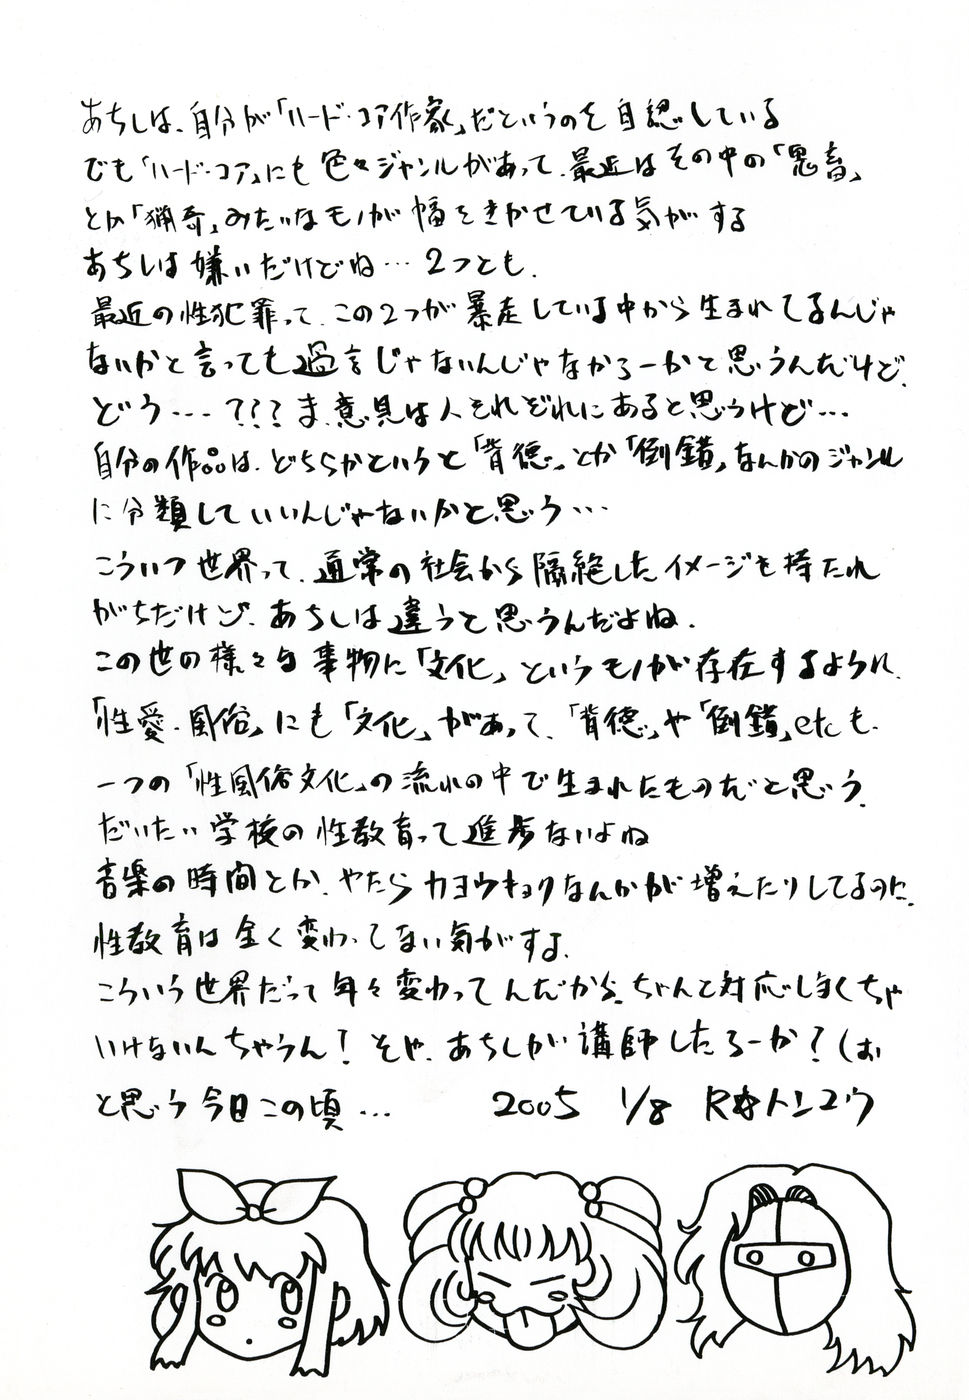 あちしは、自分が「ハード・コア作家」だというのを自認している
でも「ハード・コア」にも色々ジャンルがあって、最近はその中の「鬼畜」
とか「猟奇」みたいなモノが幅をきかせている気がする
あちしは嫌いだけどね… 2つとも、
最近の性犯罪って、この2つが暴走している中から生まれてるんじゃ
ないかと言っても過言じゃないんじゃなかろーかと思うんだけど、
どう…・???ま、意見は人それぞれにあると思うけど…
自分の作品は、どちらかというと「背徳」とか「倒錯」なんかのジャンル
に分類していいんじゃないかと思う…
こういつ世界って、通常の社会から隔絶したイメージを持たれ
がちだけど、あちしは違うと思うんだよね、
この世の様々な事物に「文化」というモノが存在するように、
「性愛・風俗」にも「文化」があって、「背徳」や「倒錯」etcも、
一つの「性風俗文化」の流れの中で生まれたものだと思う、
だいたい学校の性教育って進歩ないよね
音楽の時間とか、やたらカヨウキョクなんかが増えたりしてるのに、
性教育は全く変わってない気がするよ、
こういう世界だって年々変わってんだから、ちゃんと対応しまくちゃ
いけないんちゃうん! そや、あちしが講師したろーか?(お
と思う今日この頃… 2005 1/8 R